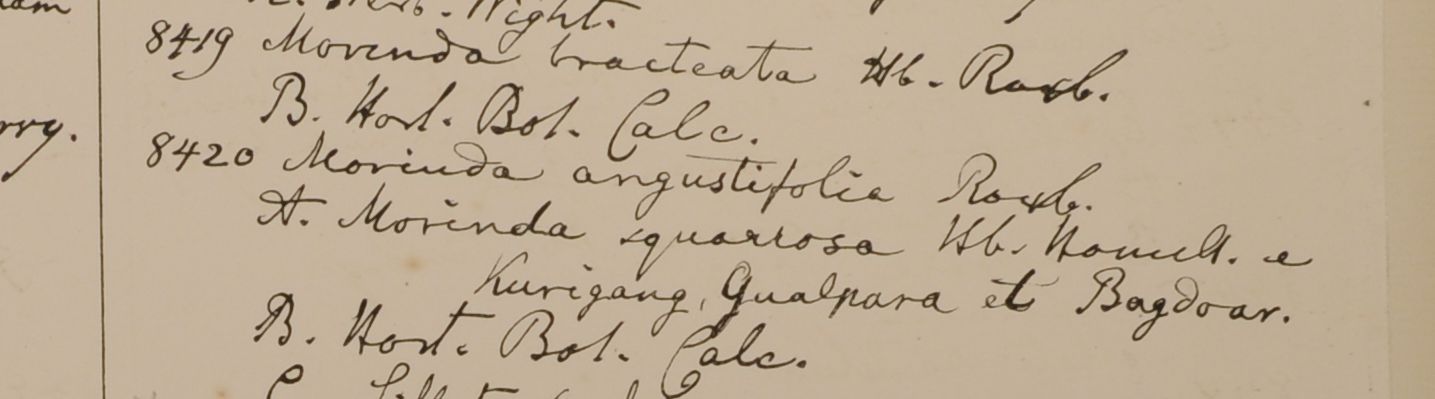 Herb. Wight.
8419 Morinda bracteata Hb. Roxb.
rry.
B. Hort. Bot. Calc.
8420 Morinda angustifolia Roxb.
A. Morinda squarrosa Hb. Hamilt. e
Kurigang, Gualpara et Bagdoar.
B. Hort. Bot. Calc.